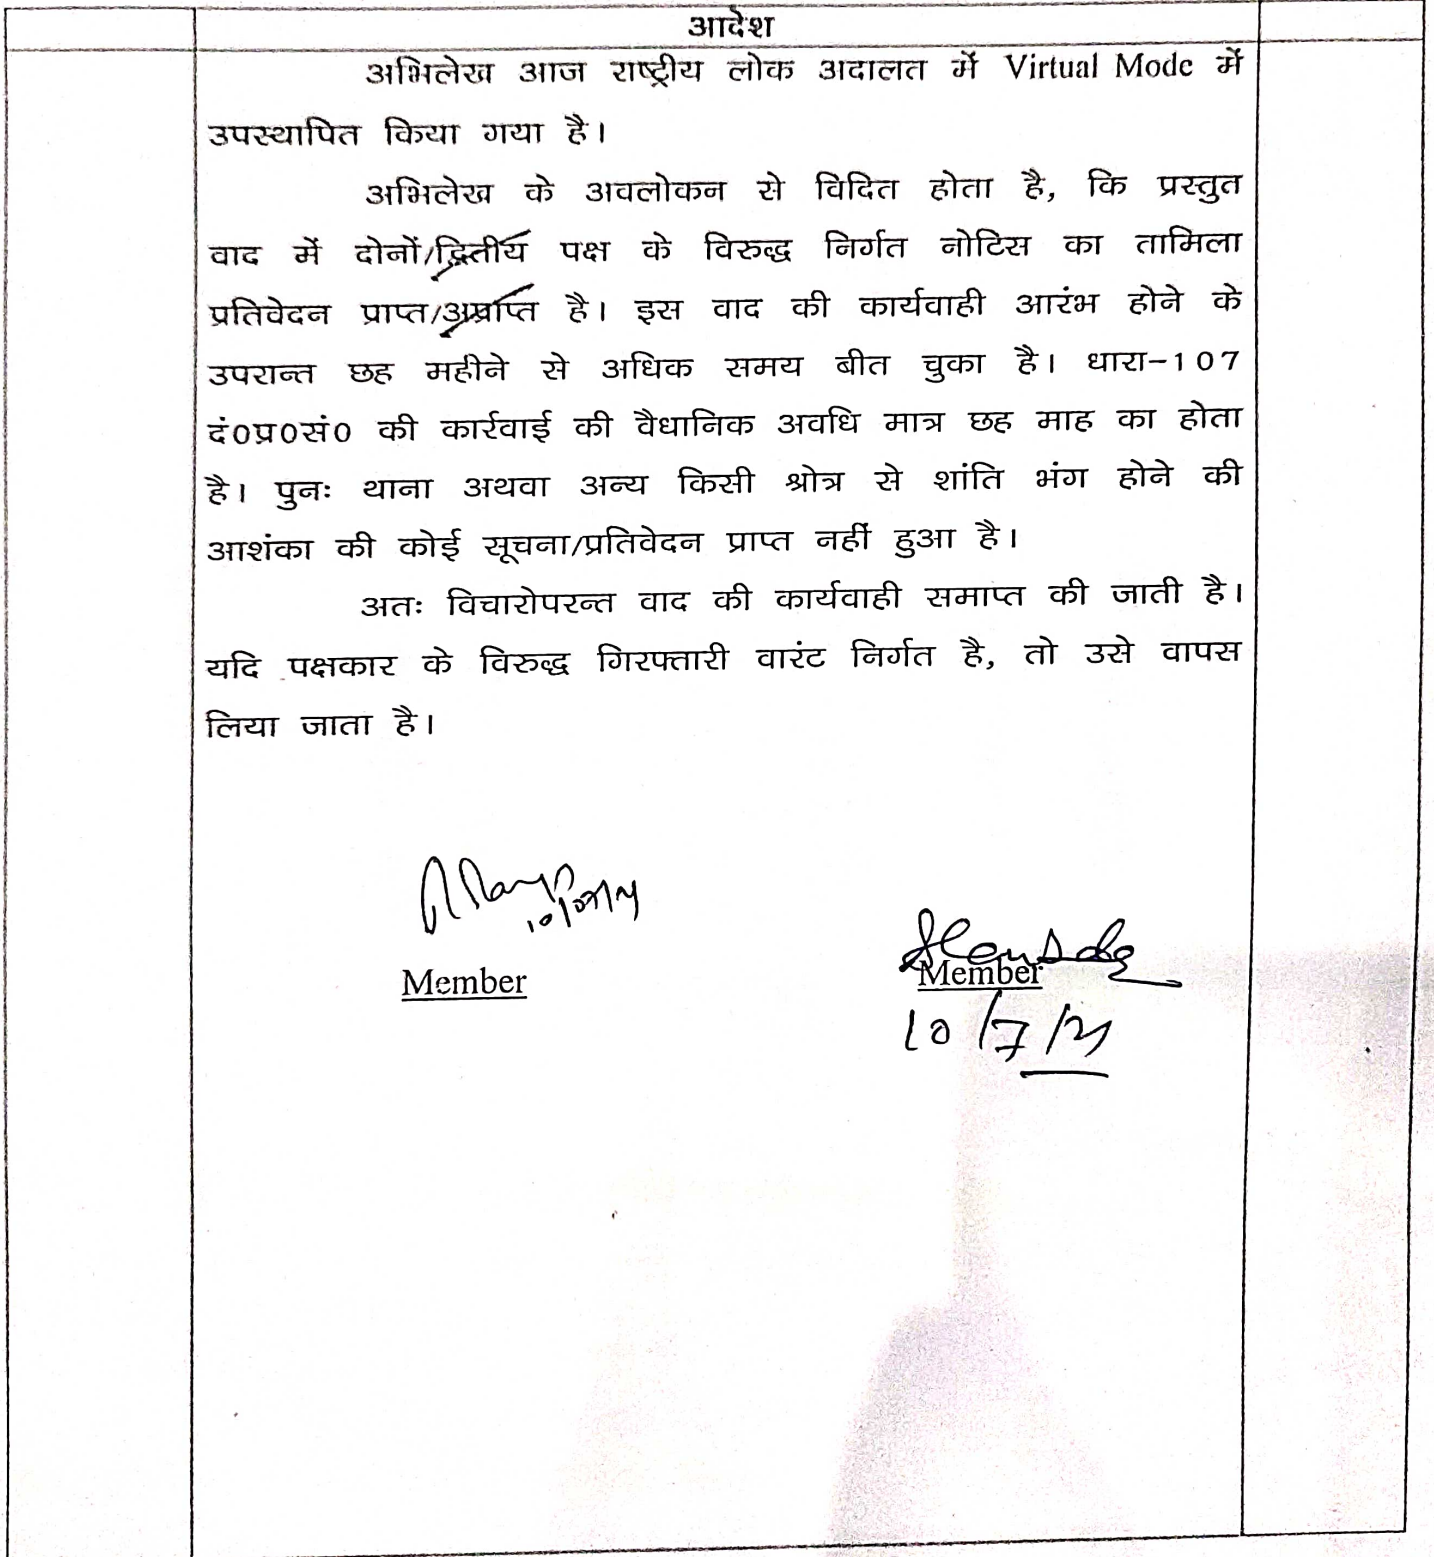 आदेश
अभिलेख आज राष्ट्रीय लोक अदालत में Virtual Mode में
उपस्थापित किया गया है।
अभिलेख के अवलोकन से विदित होता है, कि प्रस्तुत
वाद में दोनों/द्वितीय पक्ष के विरुद्ध निर्गत नोटिस का तामिला
प्रतिवेदन प्राप्त/अप्राप्त है। इस वाद की कार्यवाही आरंभ होने के
उपरान्त छह महीने से अधिक समय बीत चुका है। धारा-107
दं०प्र०सं० की कार्रवाई की वैधानिक अवधि मात्र छह माह का होता
है। पुनः थाना अथवा अन्य किसी श्रोत्र से शांति भंग होने की
आशंका की कोई सूचना/प्रतिवेदन प्राप्त नहीं हुआ है।
अतः विचारोपरन्त वाद की कार्यवाही समाप्त की जाती है।
यदि पक्षकार के विरुद्ध गिरफ्तारी वारंट निर्गत है, तो उसे वापस
लिया जाता है।
Member
Member
10/7/21